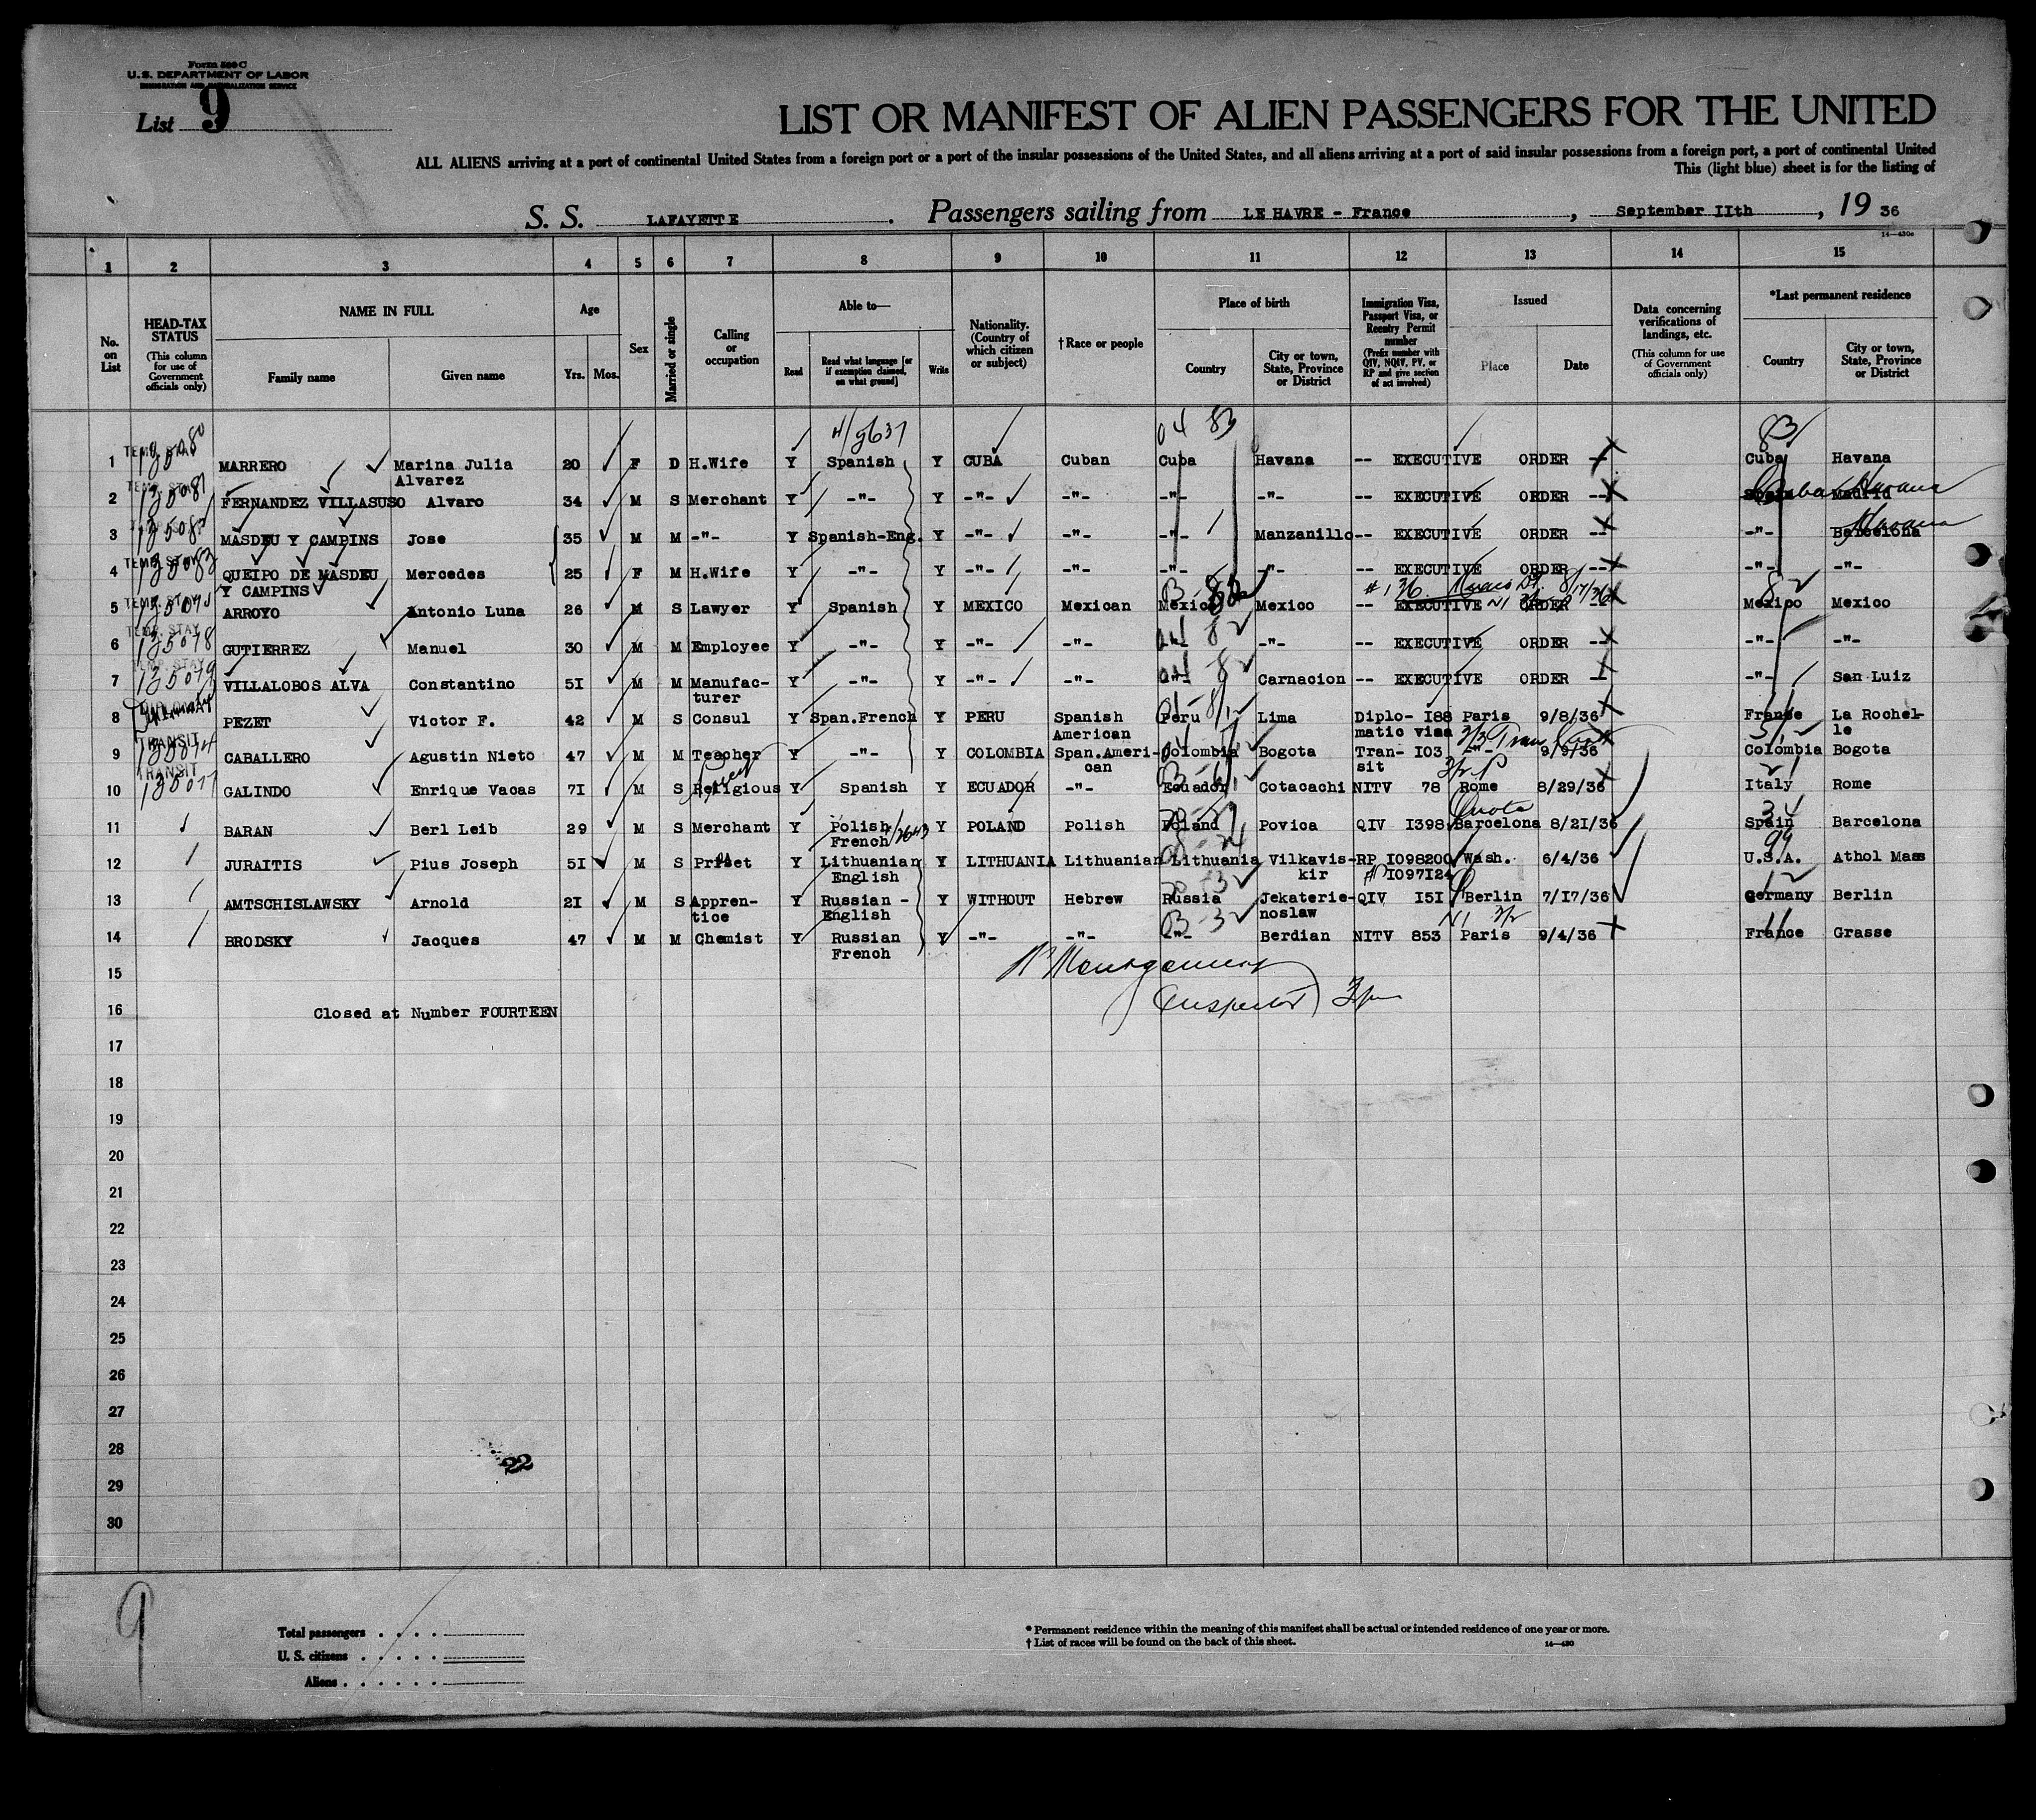 Form 560 C
U.S. DEPARTMENT OF LABOR
IMMIGRATION AND NATURALIZATION SERVICE
List 9
LIST OR MANIFEST OF ALIEN PASSENGERS FOR THE UNITED
ALL ALIENS arriving at a port of continental United States from a foreign port or a port of the insular possessions of the United States, and all aliens arriving at a port of said insular possessions from a foreign port, a port of continental United
This (light blue) sheet is for the listing of
S. S. LAFAYETTE. Passengers sailing from LE HAVRE - France, September IIth, 19 36
1 2 3 4 5 6 7 8 9 10 11 12 13 14 15
No. on List
HEAD-TAX STATUS (This column for use of Government officials only)
NAME IN FULL Family name Given name
Age Yrs. Mos.
Sex
Married or single
Calling or occupation
Able to— Read Read what language [or if exemption claimed, on what ground] Write
Nationality. (Country of which citizen or subject)
† Race or people
Place of birth Country City or town, State, Province or District
Immigration Visa, Passport Visa, or Reentry Permit number (Prefix number with QIV, NQIV, PV, or RP and give section of act involved)
Issued Place Date
Data concerning verifications of landings, etc. (This column for use of Government officials only)
*Last permanent residence Country City or town, State, Province or District
1 TEMP. STAY 135080 MARRERO Marina Julia Alvarez 20 F D H.Wife Y Spanish Y CUBA Cuban Cuba Havana -- EXECUTIVE ORDER -- Cuba Havana
2 TEMP. STAY 135081 FERNANDEZ VILLASUSO Alvaro 34 M S Merchant Y -"- Y -"- -"- -"- -"- -- EXECUTIVE ORDER -- Cuba Madrid Havana
3 135082 MASDEU Y CAMPINS Jose 35 M M -"- Y Spanish-Eng. Y -"- -"- -"- Manzanillo -- EXECUTIVE ORDER -- -"- Barcelona Havana
4 TEMP. STAY 135083 QUEIPO DE MASDEU Y CAMPINS Mercedes 25 F M H.Wife Y -"- Y -"- -"- -"- -"- -- EXECUTIVE ORDER -- -"- -"-
5 TEMP. STAY ARROYO Antonio Luna 26 M S Lawyer Y Spanish Y MEXICO Mexican Mexico Mexico -- EXECUTIVE ORDER -- Mexico Mexico
6 TEMP. STAY 135078 GUTIERREZ Manuel 30 M M Employee Y -"- Y -"- -"- -"- -"- -- EXECUTIVE ORDER -- -"- -"-
7 TEMP. STAY 135079 VILLALOBOS ALVA Constantino 5I M M Manufac-turer Y -"- Y -"- -"- -"- Carnacion -- EXECUTIVE ORDER -- -"- San Luiz
8 PEZET Victor F. 42 M S Consul Y Span.French Y PERU Spanish American Peru Lima Diplo- I88 matic visa Paris 9/8/36 France La Rochel-le
9 TRANSIT CABALLERO Agustin Nieto 47 M M Teacher Y -"- Y COLOMBIA Span.Ameri-can Colombia Bogota Tran- I03 sit -"- 9/9/36 Colombia Bogota
10 TRANSIT 135077 GALINDO Enrique Vacas 7I M S Religious Y Spanish Y ECUADOR -"- Ecuador Cotacachi NITV 78 Rome 8/29/36 Italy Rome
11 BARAN Berl Leib 29 M S Merchant Y Polish French Y POLAND Polish Poland Povica QIV I398 Barcelona 8/2I/36 Spain Barcelona
12 JURAITIS Pius Joseph 5I M S Priset Y Lithuanian English Y LITHUANIA Lithuanian Lithuania Vilkavis-kir RP I098200 I097I24 Wash. 6/4/36 U.S.A. Athol Mass
13 AMTSCHISLAWSKY Arnold 2I M S Appren-tice Y Russian - English Y WITHOUT Hebrew Russia Jekaterie-noslaw QIV I5I Berlin 7/I7/36 Germany Berlin
14 BRODSKY Jacques 47 M M Chemist Y Russian French Y -"- -"- -"- Berdian NITV 853 Paris 9/4/36 France Grasse
15
16 Closed at Number FOURTEEN
Montgomery
Inspector
17
18
19
20
21
22
23
24
25
26
27
28
22
29
30
9
Total passengers . . . .
U. S. citizens . . . . .
Aliens . . . . . .
* Permanent residence within the meaning of this manifest shall be actual or intended residence of one year or more.
† List of races will be found on the back of this sheet. 14—430